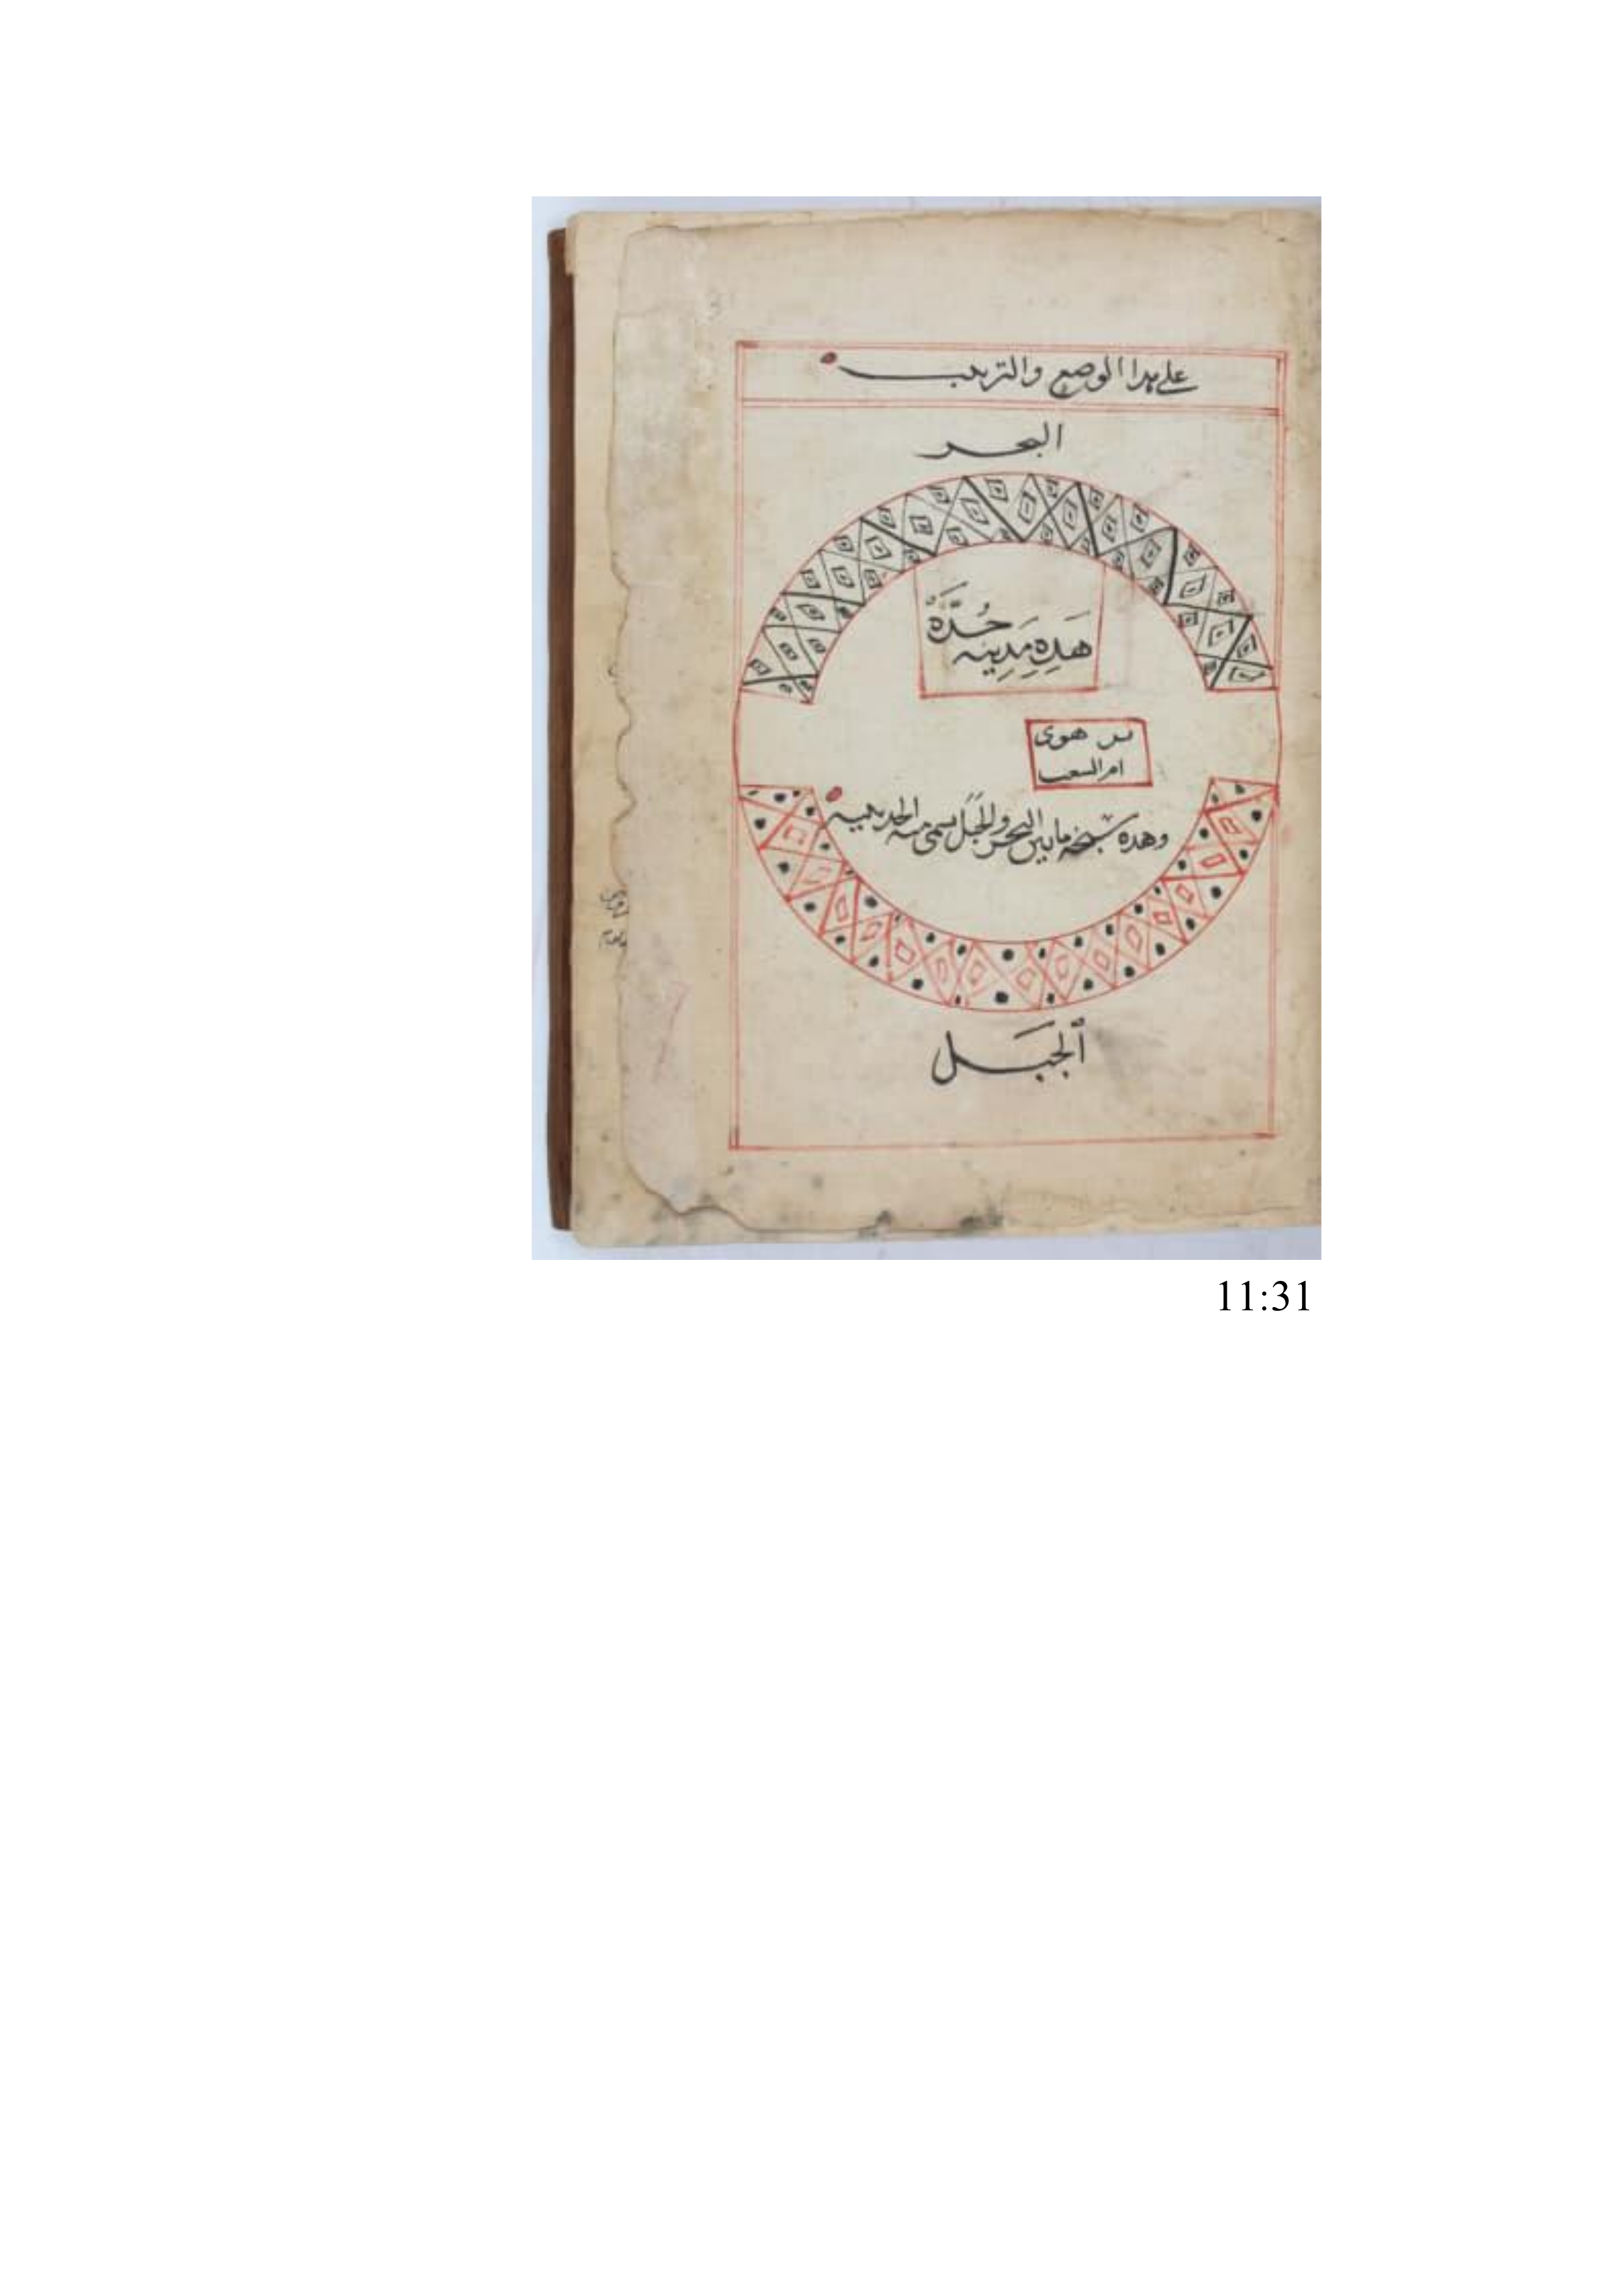 على هذا الوضع والترتيب
البحر
هَذِهِ مَدِينه جُدَّة
هوى
ام السعب
وهذه سبخه مابين البحر والجَبَل يسمى منه الحديبيه
اَلجَبَل
11:31